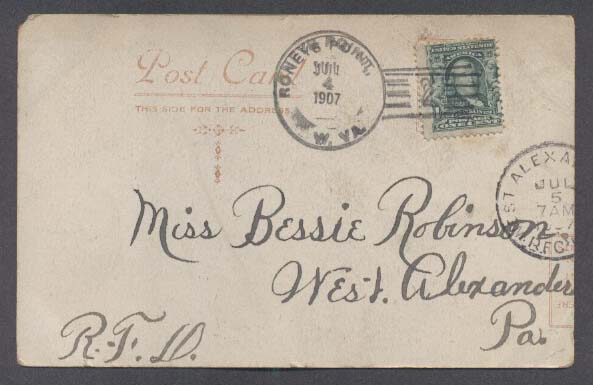 Post Card
THIS SIDE FOR THE ADDRESS
RONEYS POINT,
JUL
4
1907
W. VA.
UNITED STATES OF
ST ALEXA
JUL
5
7AM
Miss Bessie Robinson
West. Alexander
Pa.
R.F.D.